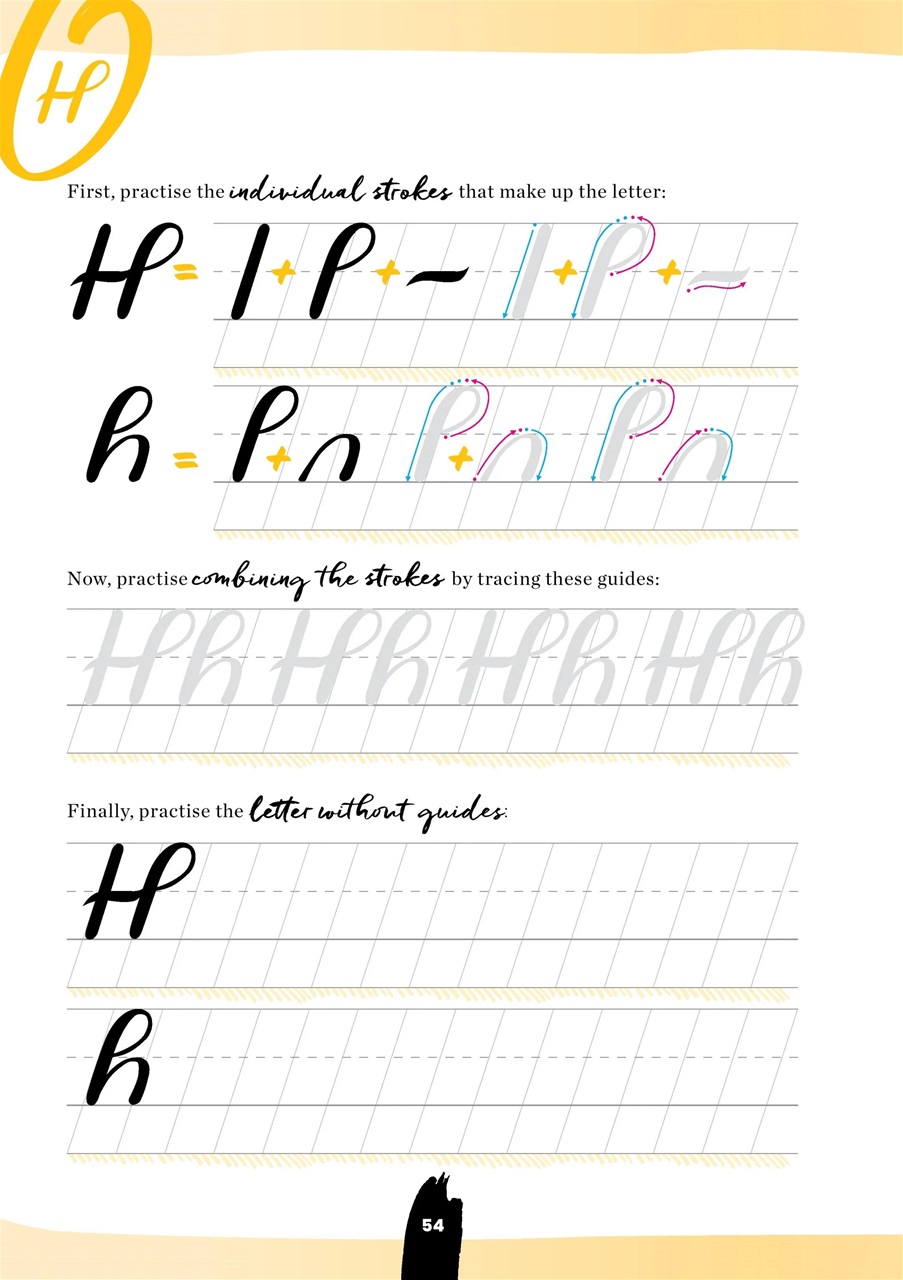 H
First, practise the individual strokes that make up the letter:
H = l + l + ~ l + l + ~
h = l + n l + n l n
Now, practise combining the strokes by tracing these guides:
Hh Hh Hh Hh
Finally, practise the letter without guides:
H
h
54